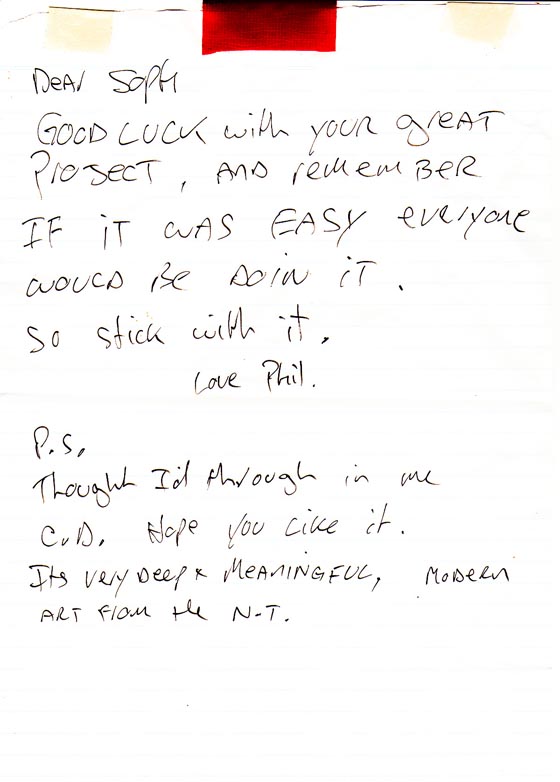 Dear Soph
GOOD LUCK with your great
Project, AND remember
IF iT wAS EASY everyone
would Be Doin iT.
So stick with it.
Love Phil.
P.S,
Thought I'd through in me
C.D. Hope you like it.
Its very Deep & MEANINGFUL, MoDern
ART from the N.T.